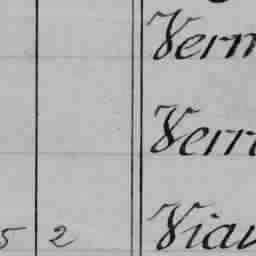 Verm
Verr
5 2 Viau